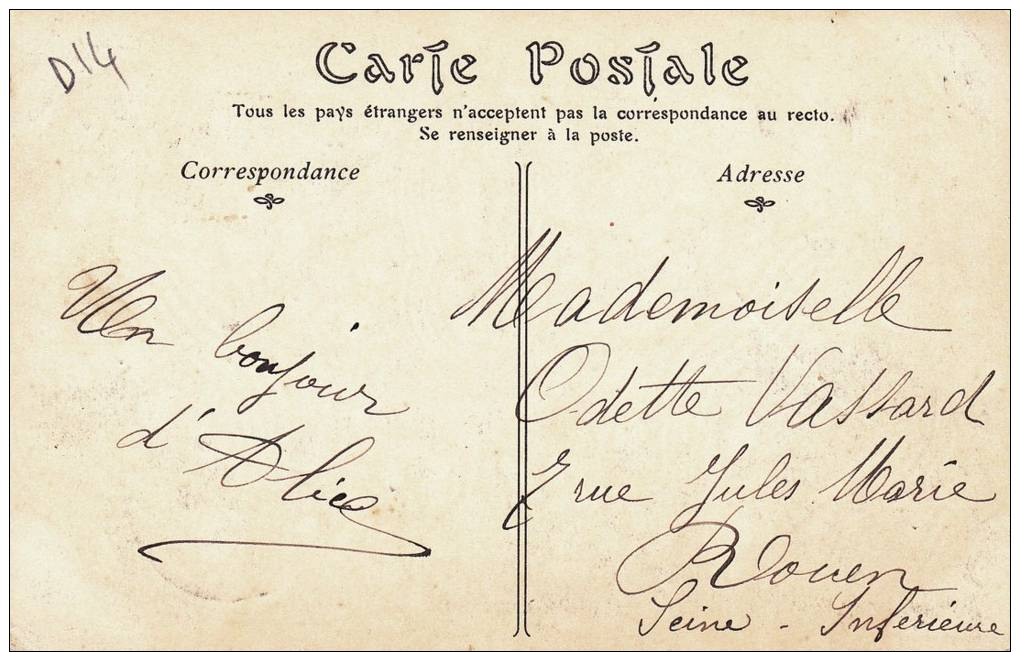 D14
Carte Postale
Tous les pays étrangers n'acceptent pas la correspondance au recto.
Se renseigner à la poste.
Correspondance
Un bonjour
d'Alice
Adresse
Mademoiselle
Odette Vassard
rue Jules Marie
Rouen
Seine - Inférieure